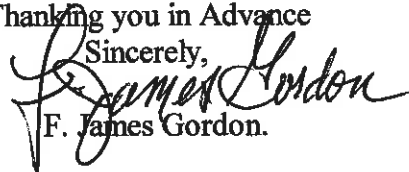 Thanking you in Advance
Sincerely,
F. James Gordon
F. James Gordon.